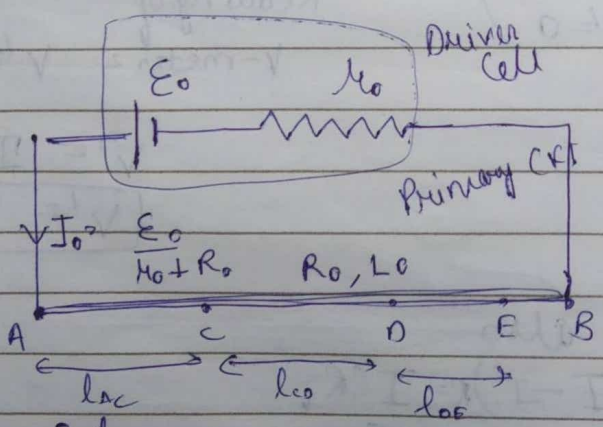 Driver
Cell
ε₀ r₀
Primary CKT
I₀ = ε₀ / r₀ + R₀
R₀, L₀
A C D E B
l_AC l_CD l_DE